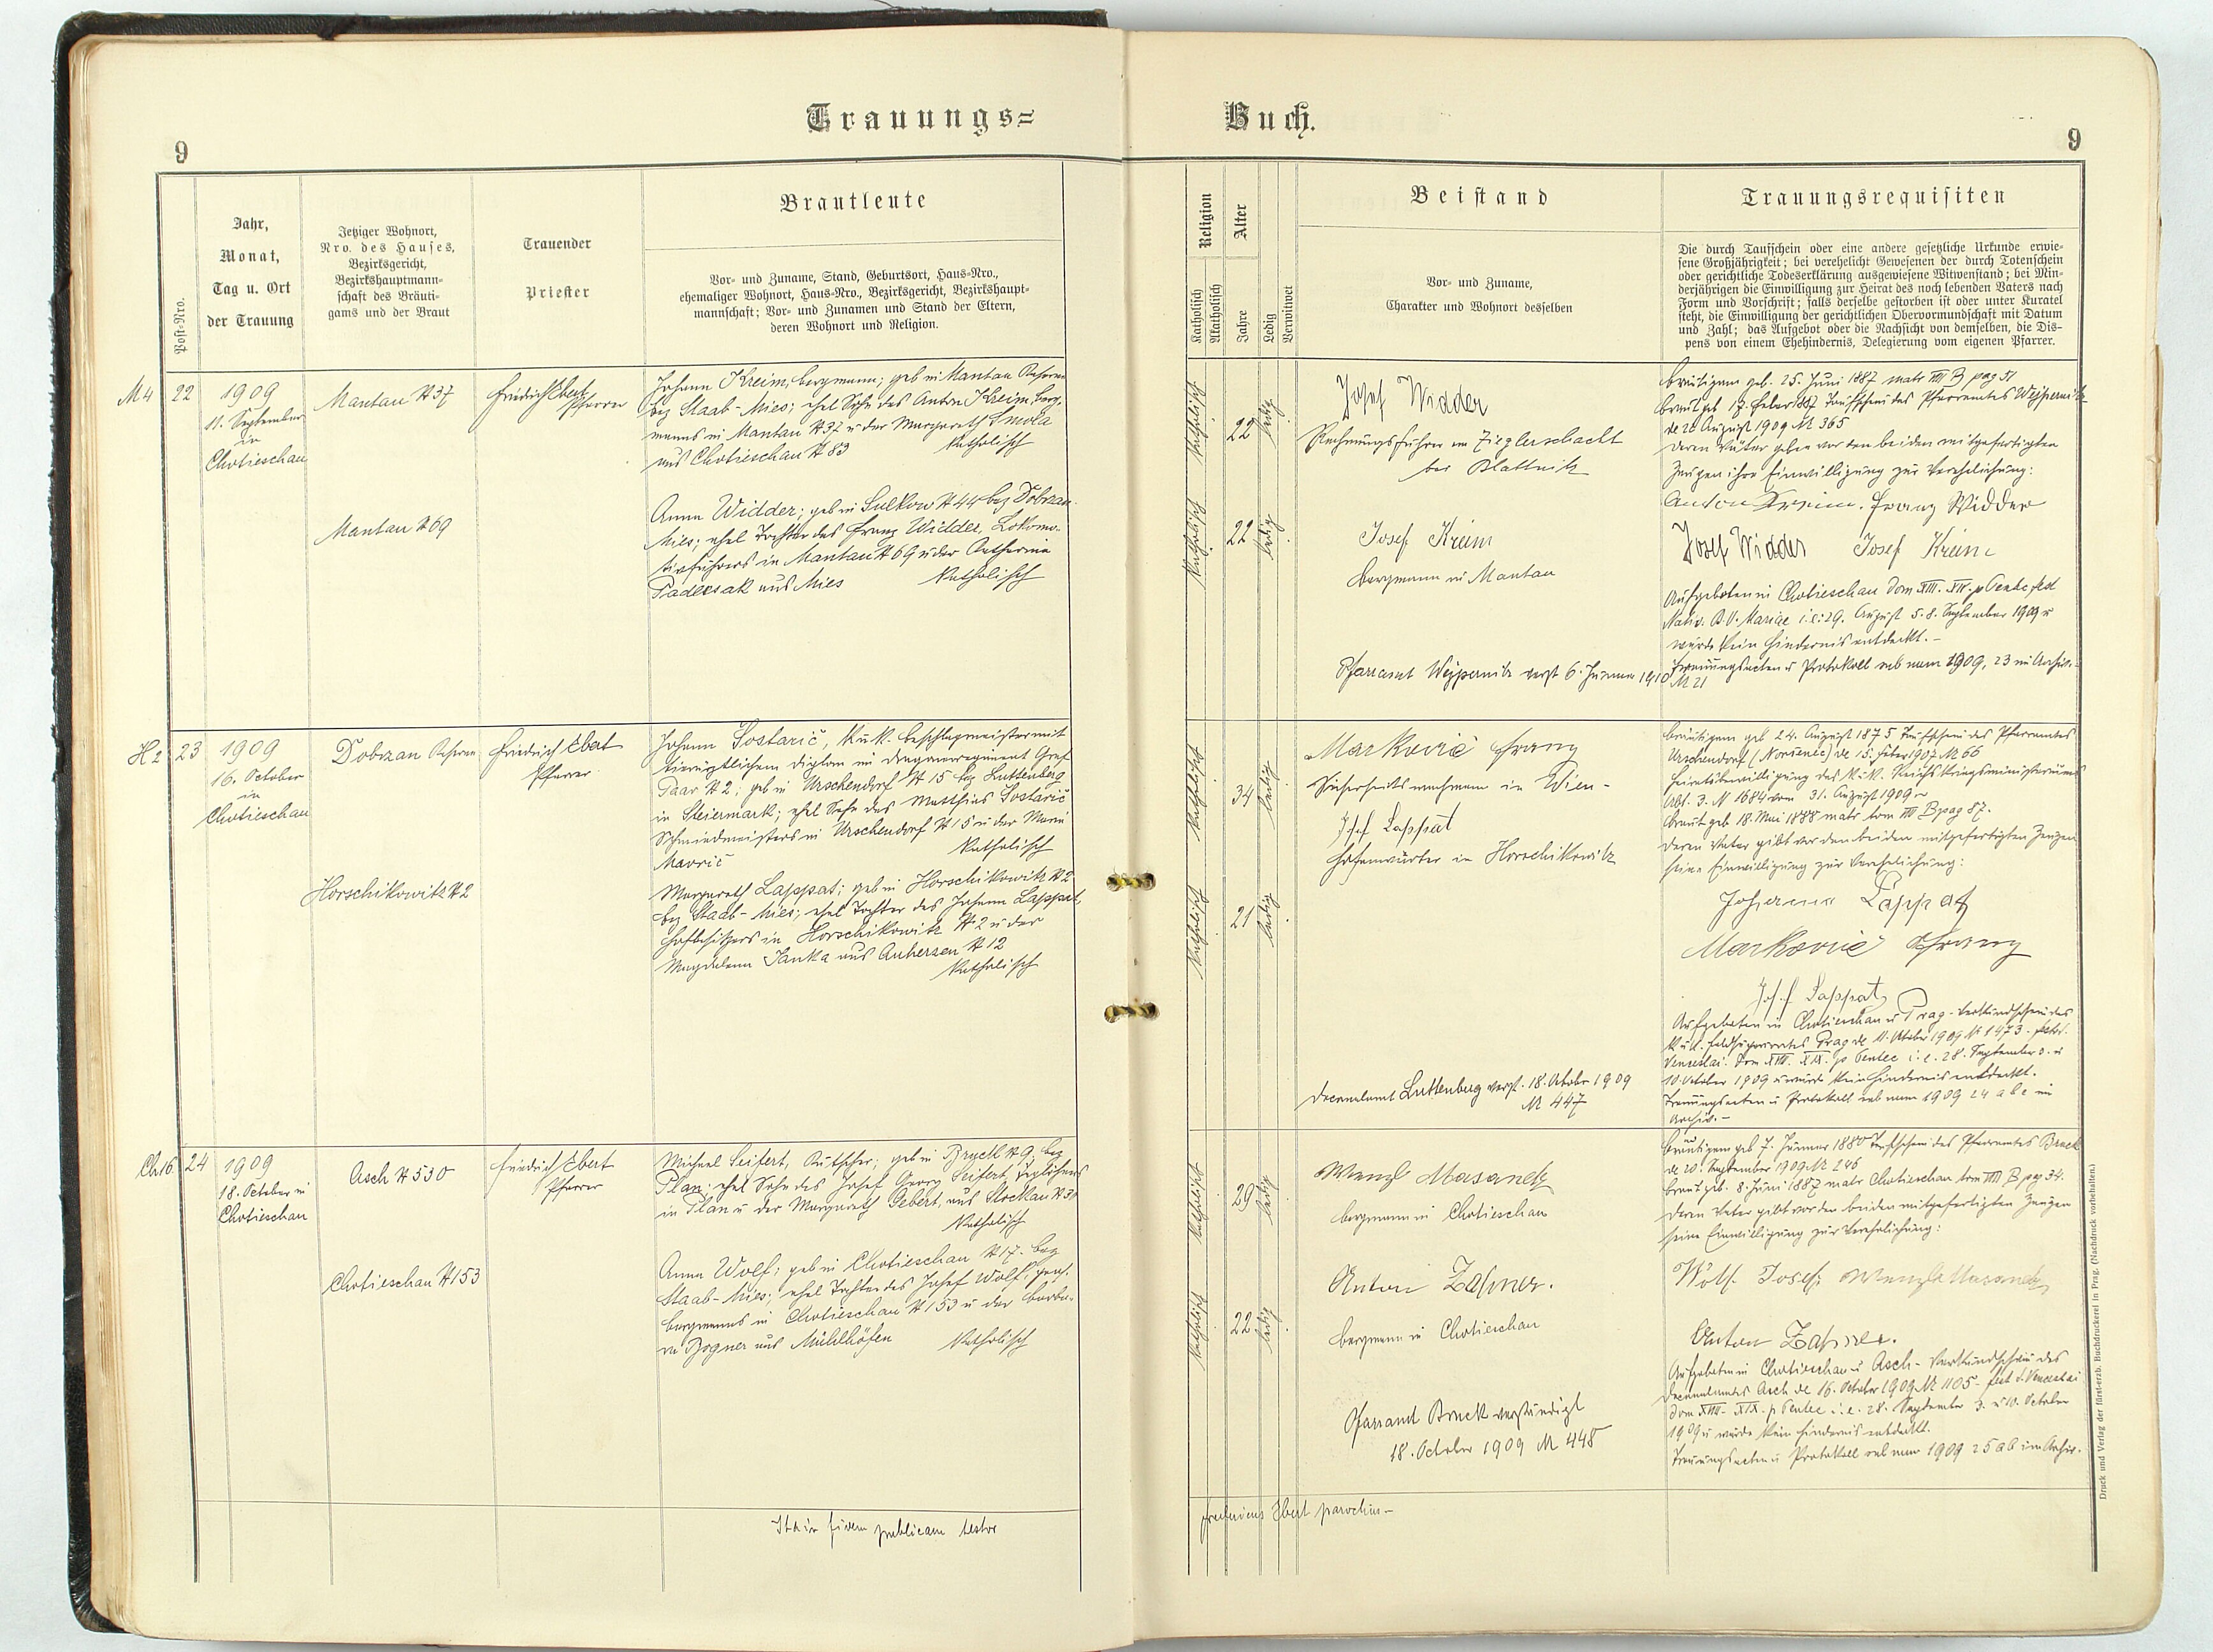 Trauungs=
Buch.
9
9
Post-Nro.
Jahr,
Monat,
Tag u. Ort
der Trauung
Jetziger Wohnort,
Nro. des Hauses,
Bezirksgericht,
Bezirkshauptmann-
schaft des Bräuti-
gams und der Braut
Trauender
Priester
Brautleute
Vor- und Zuname, Stand, Geburtsort, Haus-Nro.,
ehemaliger Wohnort, Haus-Nro., Bezirksgericht, Bezirkshaupt-
mannschaft; Vor- und Zunamen und Stand der Eltern,
deren Wohnort und Religion.
Religion
Katholisch
Akatholisch
Alter
Jahre
Ledig
Verwitwet
Beistand
Vor- und Zuname,
Charakter und Wohnort desselben
Trauungsrequisiten
Die durch Taufschein oder eine andere gesetzliche Urkunde erwie-
sene Großjährigkeit; bei verehelicht Gewesenen der durch Totenschein
oder gerichtliche Todeserklärung ausgewiesene Witwenstand; bei Min-
derjährigen die Einwilligung zur Heirat des noch lebenden Vaters nach
Form und Vorschrift; falls derselbe gestorben ist oder unter Kuratel
steht, die Einwilligung der gerichtlichen Obervormundschaft mit Datum
und Zahl; das Aufgebot oder die Nachsicht von demselben, die Dis-
pens von einem Ehehindernis, Delegierung vom eigenen Pfarrer.
M 4
22
1909
11. September
in
Chotieschau
Mantau N 37
Friedrich Ebert
Pfarrer
Johann Kreim, Bergmann; geb in Mantau
bez Staab-Mies; ehel Sohn des Anton Kreim, Berg-
manns in Mantau N 37 u der Margareth Smola
aus Chotieschau N 83 Katholisch
Mantau N 69
Anna Widder; geb in Sulkow N 44 bez Dobrzan-
Mies; ehel Tochter des Franz Widder, Lokomo-
tivführers in Mantau N 69 u der Katharina
Padersak aus Mies Katholisch
Katholisch
22
ledig
Katholisch
22
ledig
Josef Widder
Rechnungsführer im Zieglerschacht
bei Blattnitz
Josef Kreim
Bergmann in Mantau
Pfarramt Wejpernitz verst 6. Jänner 1910 N 21
Bräutigam geb. 25. Juni 1887 matr VIII B pag 51
Braut geb 17. Feber 1887 Taufschein des Pfarramtes Wejpernitz
de 20 August 1909 N 365
Deren Väter geben vor den beiden mitgefertigten
Zeugen ihre Einwilligung zur Verehelichung:
Anton Kreim. Franz Widder
Josef Widder Josef Kreim
Aufgeboten in Chotieschau Dom XIII. XIV. p Pentec fest
Nativ. B. V. Mariae i. e. 29. August 5. 8. September 1909 u
wurde kein Hindernis entdeckt.-
Trauungsacten u Protokoll sub num 1909, 23 im Archiv.-
H 2
23
1909
16. October
in
Chotieschau
Dobrzan
Friedrich Ebert
Pfarrer
Johann Sostarič, k. u. k. Beschlagmeister mit
tierärztlichem Diplom im Dragonerregiment Graf
Paar N 2; geb in Urschendorf N 15 bez Luttenberg
in Steiermark; ehel Sohn des Matthias Sostarič
Schmiedmeisters in Urschendorf N 15 u der Maria
Mavrič Katholisch
Horschikowitz N 2
Margareth Lappat; geb in Horschikowitz N 2
bez Staab-Mies; ehel Tochter des Johann Lappat,
Hofbesitzers in Horschikowitz N 2 u der
Magdalena Janka aus Auherzen N 12
Katholisch
Katholisch
34
ledig
Katholisch
21
ledig
Markovič Franz
Sicherheitswachmann in Wien-
Josef Lappat
in Horschikowitz
Decanalamt Luttenberg verst. 18. October 1909
N 447
Bräutigam geb 24. August 1875 Taufschein des Pfarramtes
Urschendorf de 15. Feber 1907 N 66
Heiratsbewilligung des k. u. k. Reichskriegsministeriums
Abt. 3. N 1684 vom 31. August 1909
Braut geb 18. Mai 1888 matr tom VIII B pag 87.
Deren Vater gibt vor den beiden mitgefertigten Zeugen
seine Einwilligung zur Verehelichung:
Johann Lappat
Markovič Franz
Josef Lappat
Aufgeboten in Chotieschau u Prag - Verkündschein des
k. u. k. Feldsuperiorates Prag de 11. October 1909 N 1473 - fest S.
Venceslai. Dom XVIII. XIX. p Pentec i. e. 28. September 3. u
10. October 1909 u wurde kein Hindernis entdeckt.
Trauungsacten u Protokoll sub num 1909 24 a b c im
Archiv.-
Ch 16
24
1909
18. October in
Chotieschau
Asch N 530
Friedrich Ebert
Pfarrer
Michael Seifert, Kutscher; geb in N 9; bez
Plan; ehel Sohn des Josef Georg Seifert, Taglöhners
in Plan u der Margareth Gebert, aus Stocklau N 31
Katholisch
Chotieschau N 153
Anna Wolf; geb in Chotieschau N 17. bez
Staab-Mies; ehel Tochter des Josef Wolf, pens.
Bergmanns in Chotieschau N 153 u der Barba-
ra Bogner aus Mühlhöfen Katholisch
Katholisch
29
ledig
Katholisch
22
ledig
Wenzl Masanetz
Bergmann in Chotieschau
Anton Zahner.
Bergmann in Chotieschau
Pfarramt Bruck verständigt
18. October 1909 N 448
Bräutigam geb 7. Jänner 1880 Taufschein des Pfarramtes Bruck
de 20. September 1909 N 246
Braut geb. 8. Juni 1887 matr Chotieschau tom VIII B pag 34.
Deren Vater gibt vor den beiden mitgefertigten Zeugen
seine Einwilligung zur Verehelichung:
Wolf Josef; Wenzl Masanetz
Anton Zahner.
Aufgeboten in Chotieschau u Asch - Verkündschein des
Decanalamtes Asch de 16. October 1909 N 1105 - fest S. Venceslai
Dom XVIII- XIX. p Pentec i. e. 28. September 3. u 10. October
1909 u wurde kein Hindernis entdeckt.
Trauungsacten u Protokoll sub num 1909 25 a b im Archiv.
Ita in fidem publicam testor
Fridericus Ebert parochus-
Druck und Verlag der fürst-erzb. Buchdruckerei in Prag. (Nachdruck vorbehalten.)